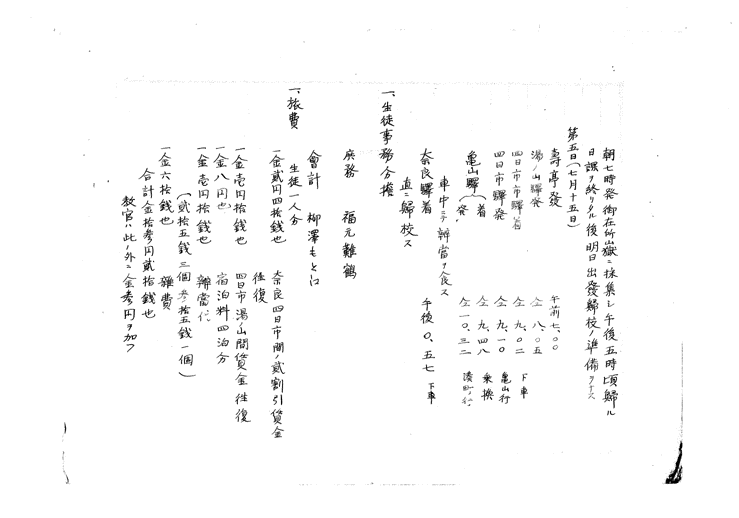 朝七時発御在所嶽ニ採集シ午後五時頃歸ル
日課ヲ終リタル後明日出發歸校ノ準備ヲナス
第五日(七月十五日)
壽亭發 午前七、〇〇
湯ノ山驛発 仝 八、〇五
四日市驛着 仝 九、〇二 下車
四日市驛発 仝 九、一〇 亀山行
亀山驛(着 仝 九、四八 乗換
発 仝 一〇、三二 湊町行
車中ニテ辨當ヲ食ス
奈良驛着 午後 〇、五七 下車
直ニ歸校ス
一、生徒事務分擔
庶務 福元難鶴
會計 柳澤もと江
一、旅費
生徒一人分
一金貮円四拾銭也 奈良四日市間ノ貮割引賃金
往復
一金壱円拾銭也 四日市湯ノ山間賃金往復
一金八円也 宿泊料四泊分
一金壱円拾銭也 辨當代
(貮拾五銭三個 参拾五銭一個)
一金六拾銭也 雑費
合計金拾参円貮拾銭也
教官ハ此ノ外ニ金参円ヲ加フ